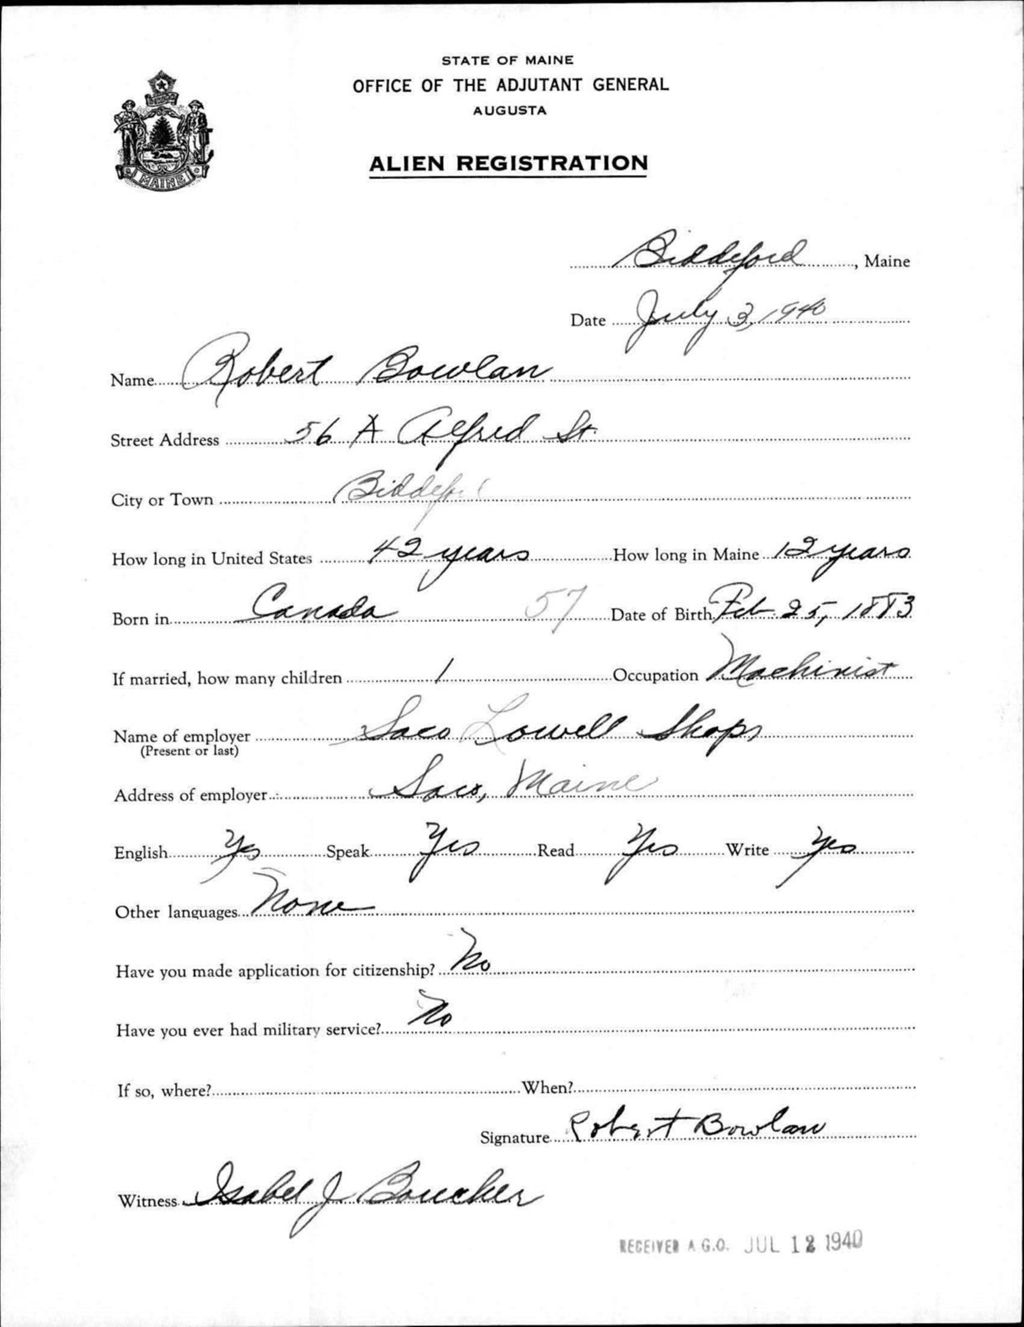 STATE OF MAINE
OFFICE OF THE ADJUTANT GENERAL
AUGUSTA
MAINE
ALIEN REGISTRATION
Biddeford, Maine
Date July 3, 1940
Name Robert Bowlan
Street Address 56 A Alfred St.
City or Town Biddeford
How long in United States 42 years How long in Maine 12 years
Born in Canada 57 Date of Birth Feb 25, 1883
If married, how many children 1 Occupation Machinist
Name of employer Saco Lowell Shops
(Present or last)
Address of employer Saco, Maine
English Yes Speak Yes Read Yes Write Yes
Other languages None
Have you made application for citizenship? No
Have you ever had military service? No
If so, where? When?
Signature Robert Bowlan
Witness Isabel J Boucher
RECEIVED A.G.O. JUL 12 1940